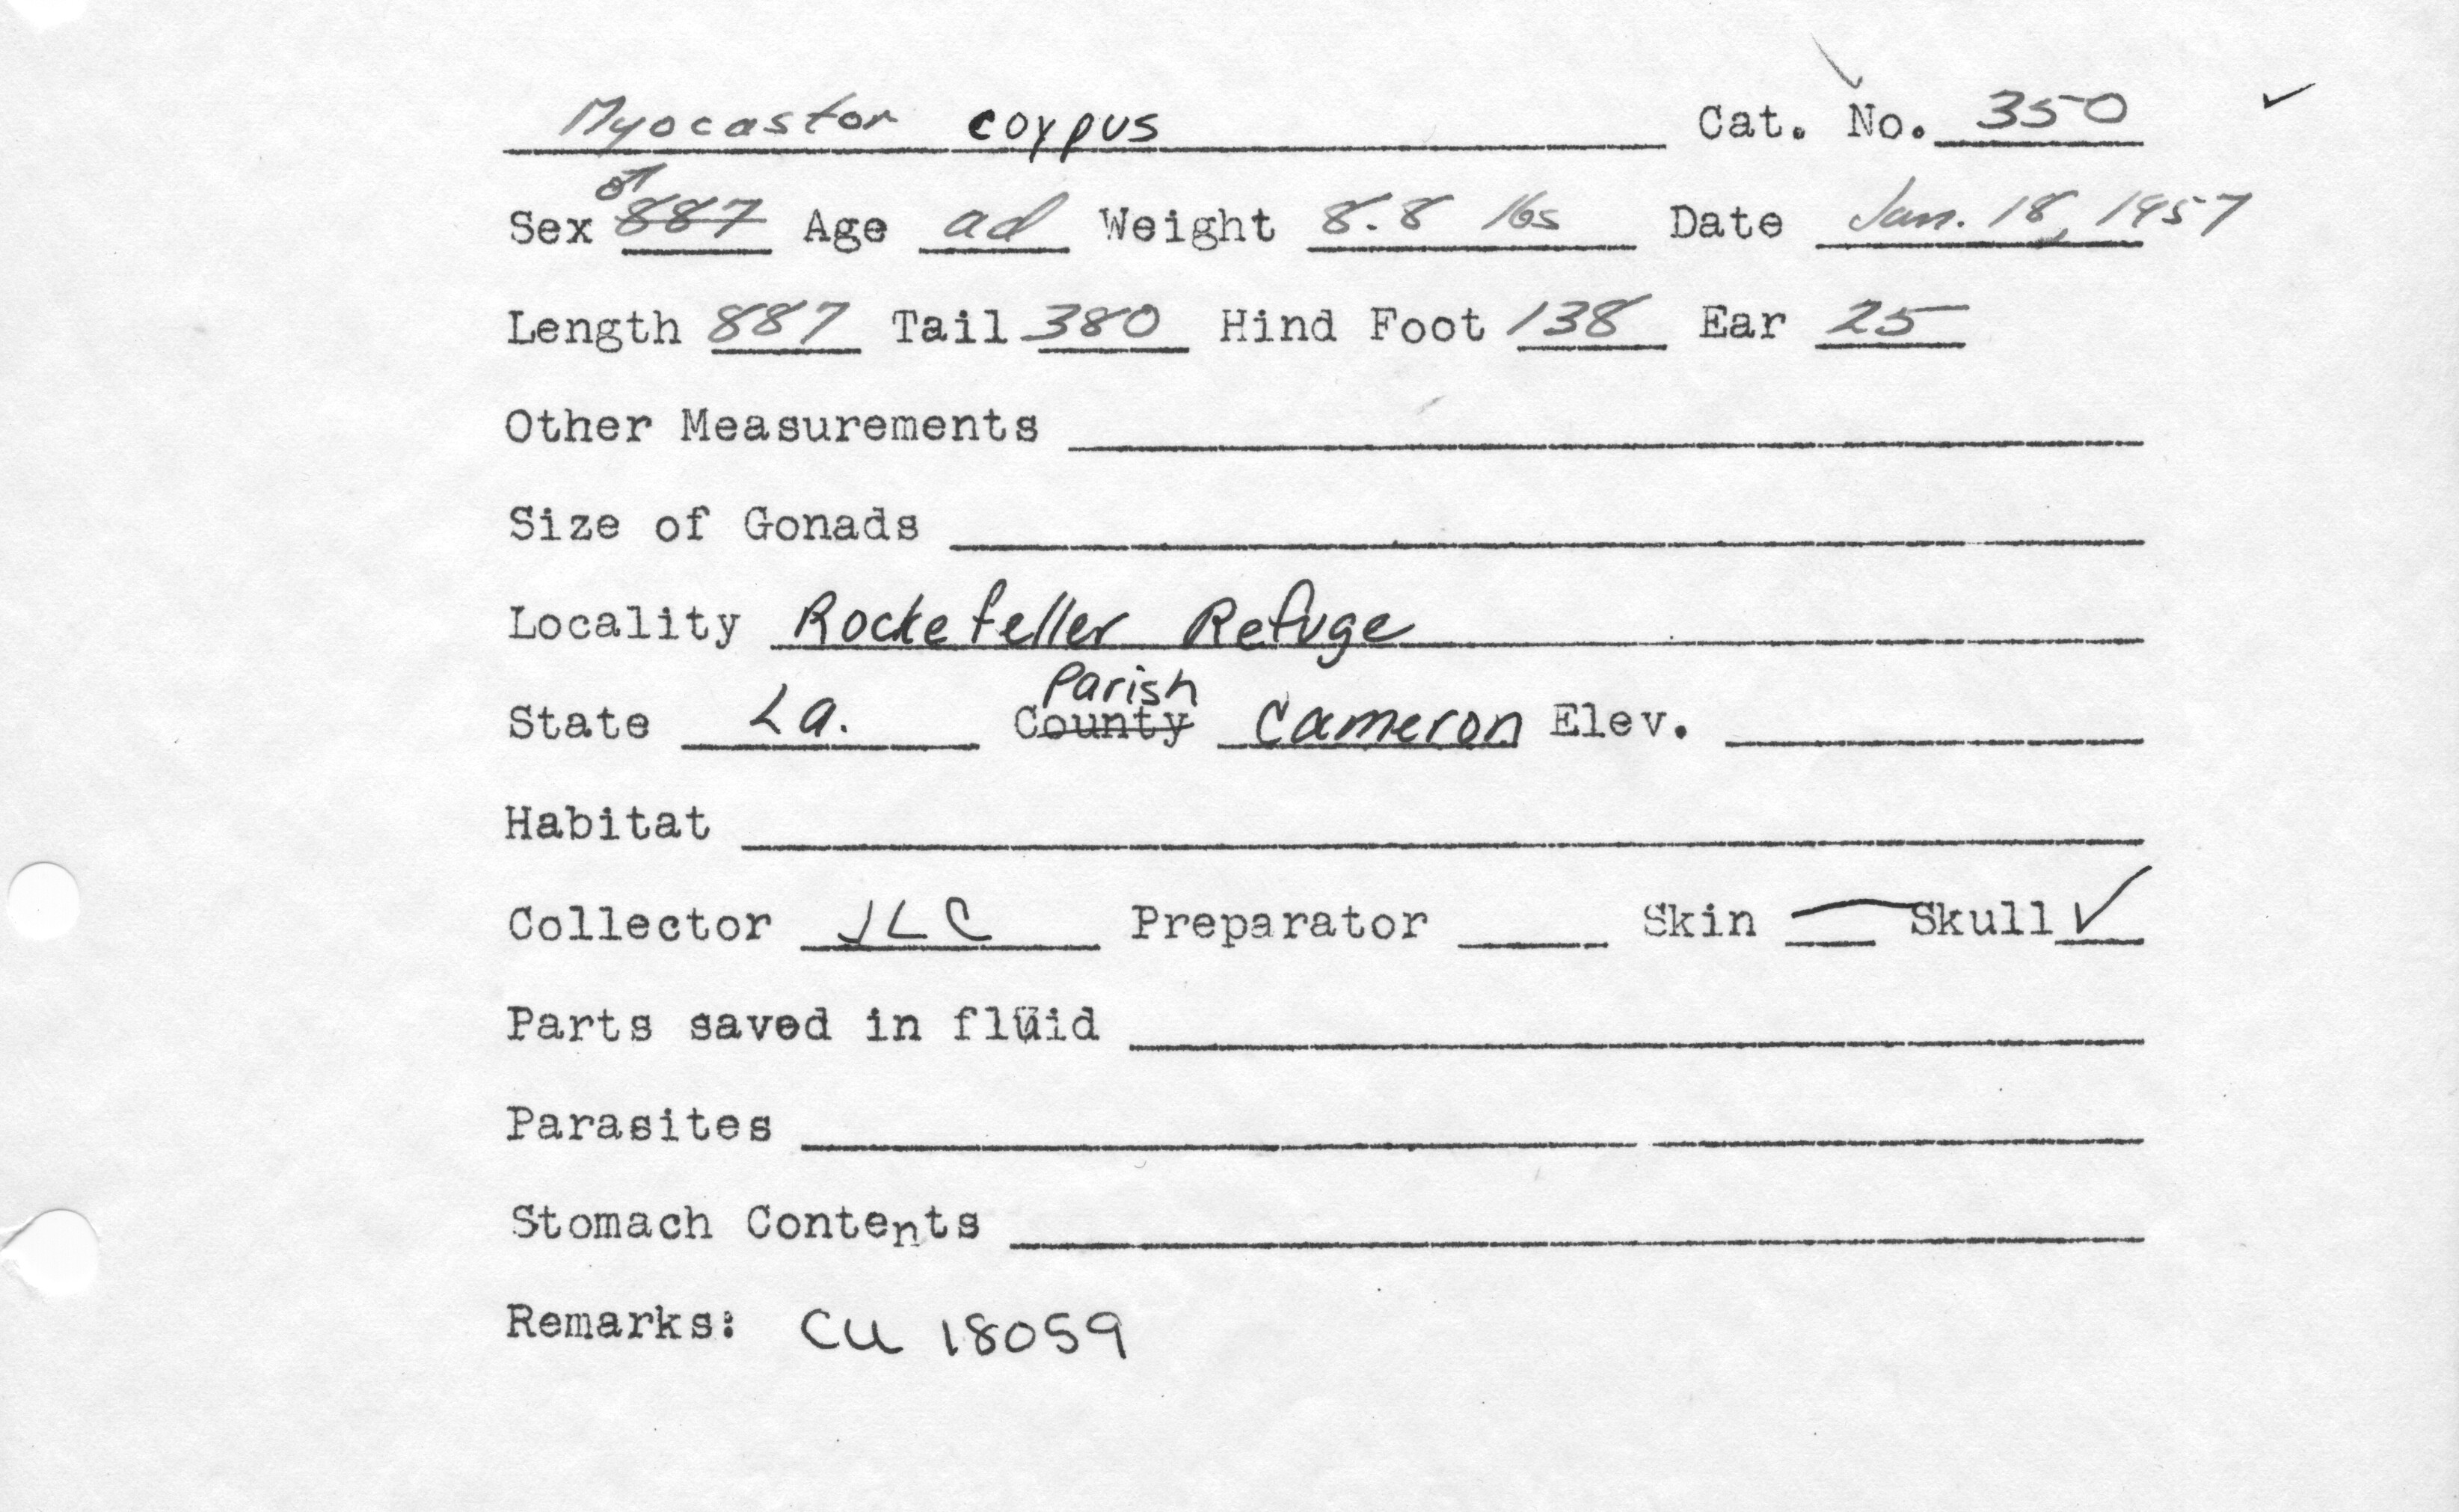 Myocastor coypus Cat. No. 350
Sex ♂ 887 Age ad Weight 8.8 lbs Date Jan. 18, 1957
Length 887 Tail 380 Hind Foot 138 Ear 25
Other Measurements
Size of Gonads
Locality Rockefeller Refuge
State La. County Parish Cameron Elev.
Habitat
Collector JLC Preparator Skin — Skull ✓
Parts saved in fluid
Parasites
Stomach Contents
Remarks: CU 18059